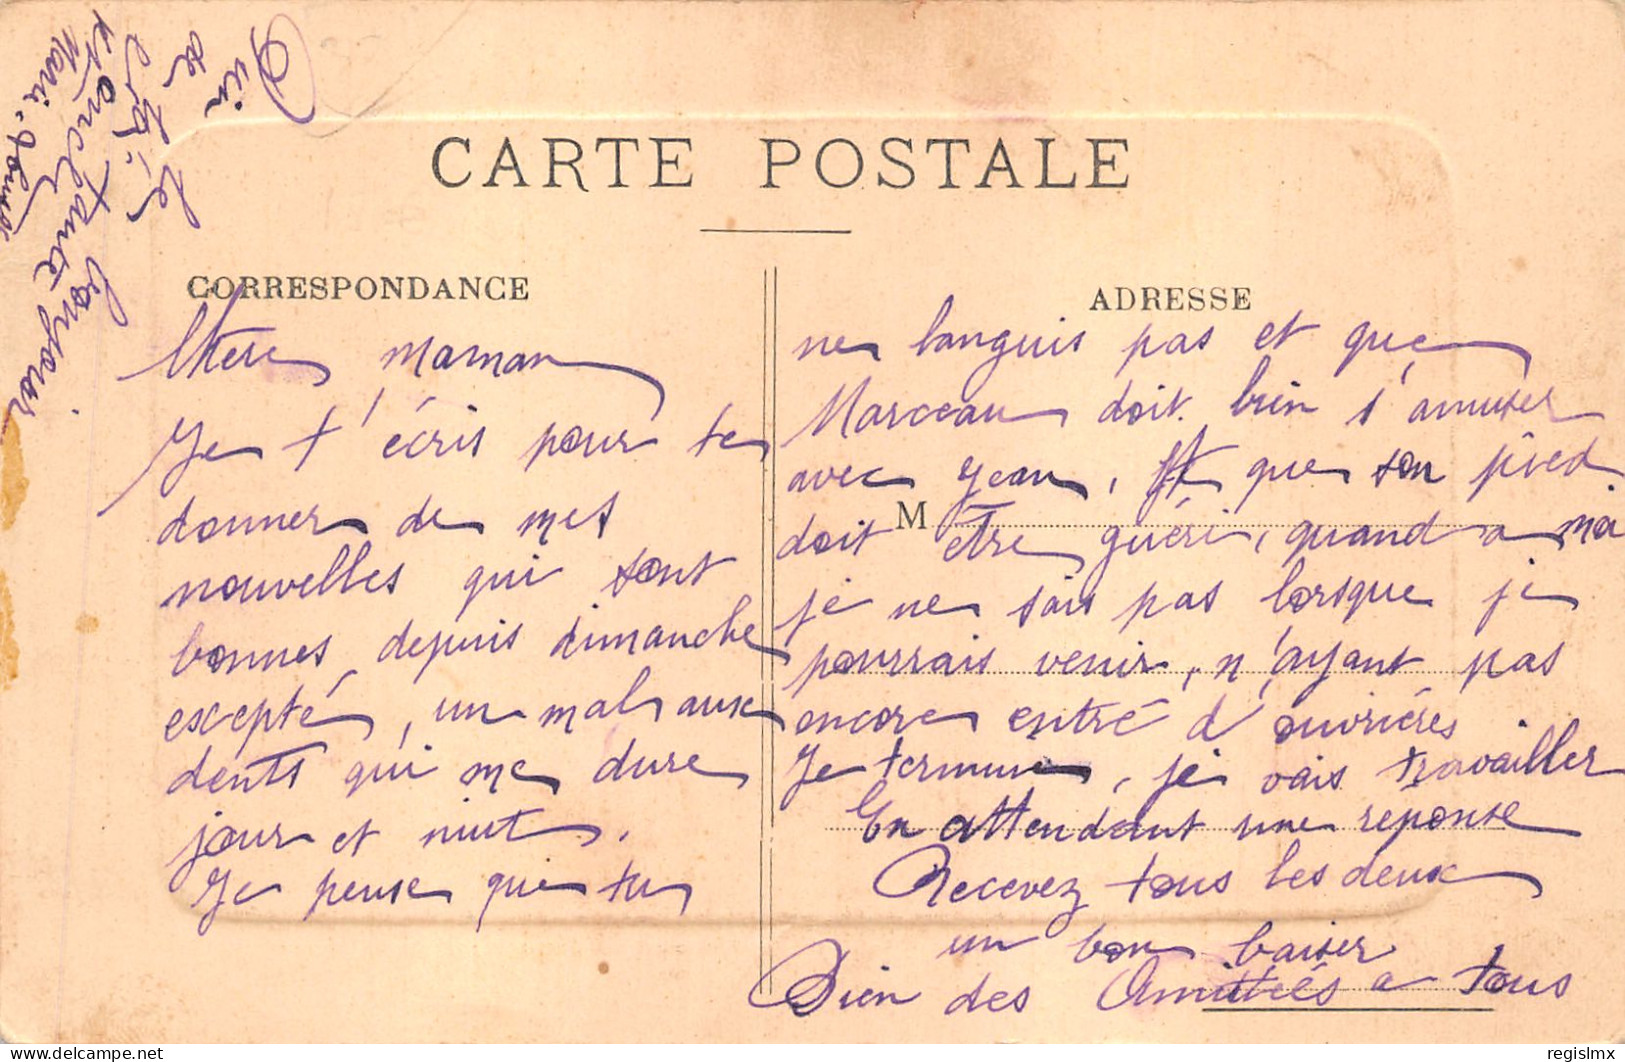 CARTE POSTALE
CORRESPONDANCE
ADRESSE
M
Chere maman
Je t'écris pour te
donner de mes
nouvelles qui sont
bonnes depuis dimanche
excepté, un mal aux
dents qui me dure
jour et nuit,
Je pense que tu
ne languis pas et que
Marceau doit bien s'amuser
avec Jean, que son pied
doit être guéri, quand a moi
je ne sais pas lorsque je
pourrais venir, n'ayant pas
encore entré d'ouvrières
Je termine, je vais travailler
En attendant une réponse
Recevez tous les deux
un bon baiser
Bien des Amitiés a tous
le bonjour
Tante
Marie
regislmx